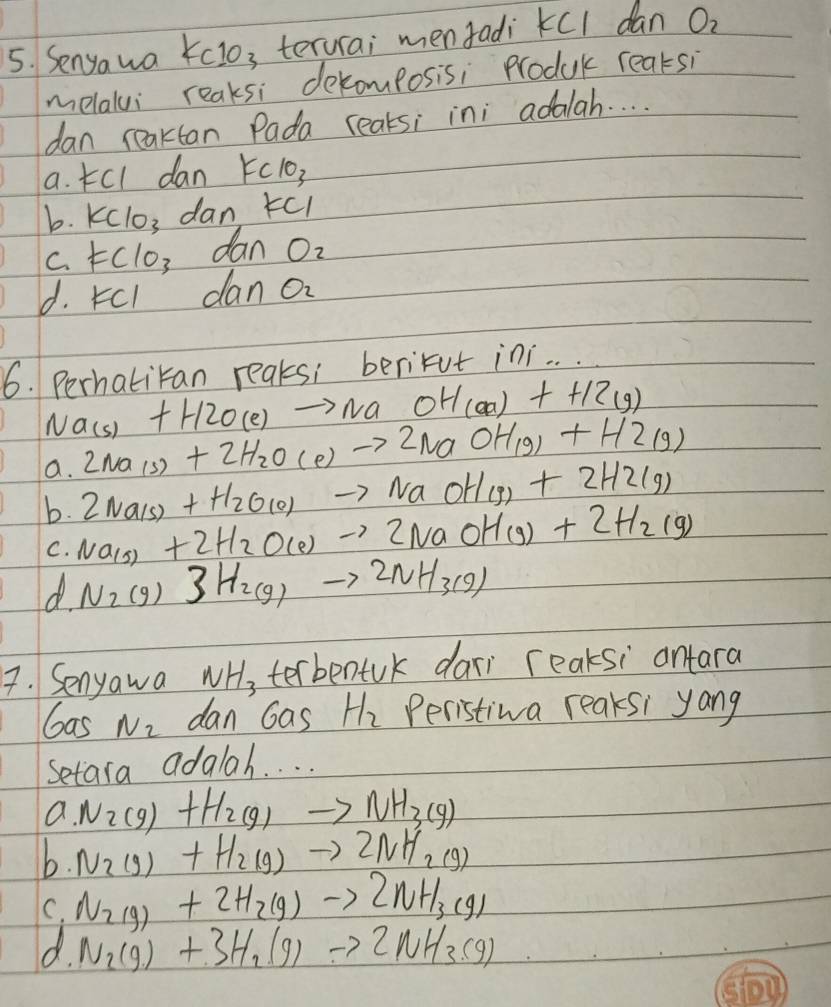 5. Senyawa KClO₃ terurai menjadi KCl dan O₂
melalui reaksi dekomposisi Produk reaksi
dan reaktan Pada reaksi ini adalah....
a. KCl dan KClO₃
b. KClO₃ dan KCl
c. KClO₃ dan O₂
d. KCl dan O₂
6. Perhatikan reaksi berikut ini...
Na(s) + H2O(e) → Na OH(aa) + H2(g)
a. 2Na(s) + 2H₂O(e) → 2Na OH(g) + H2(g)
b. 2Na(s) + H₂O(e) → Na OH(g) + 2H2(g)
c. Na(s) + 2H₂O(e) → 2Na OH(g) + 2H₂(g)
d. N₂(g) 3H₂(g) → 2NH₃(g)
7. Senyawa NH₃ terbentuk dari reaksi antara
Gas N₂ dan Gas H₂ Peristiwa reaksi yang
setara adalah....
a. N₂(g) + H₂(g) → NH₃(g)
b. N₂(g) + H₂(g) → 2NH₂(g)
c. N₂(g) + 2H₂(g) → 2NH₃(g)
d. N₂(g) + 3H₂(g) → 2NH₃(g)
SiDU